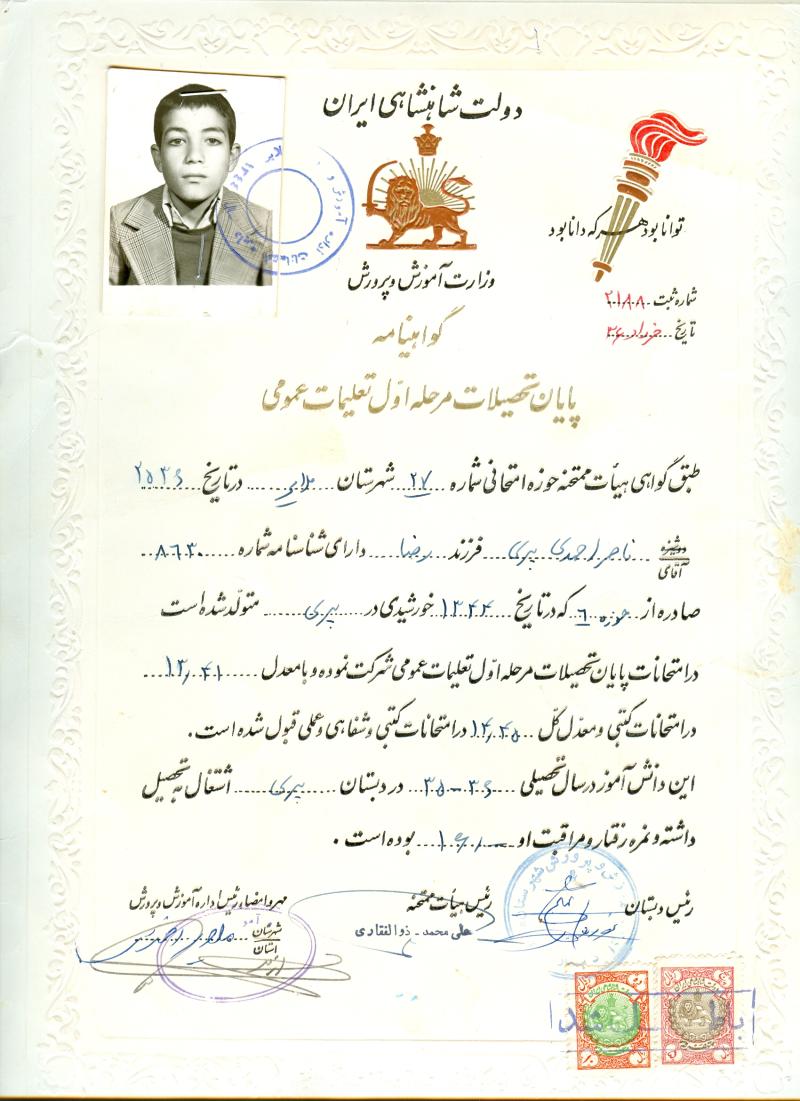 دولت شاهنشاهی ایران
توانا بود هر که دانا بود
وزارت آموزش و پرورش
شماره ثبت ۲۱۸۸
تاریخ خرداد ۳۶
گواهینامه
پایان تحصیلات مرحله اوّل تعلیمات عمومی
طبق گواهی هیأت ممتحنه حوزه امتحانی شماره ۲۷ شهرستان ملایر در تاریخ ۲۵۳۶
دوشیزه
آقای ناصر احمدی پیری فرزند رضا دارای شناسنامه شماره ۸۶۳۰
صادره از حوزه ٦ که در تاریخ ۱۳۴۴ خورشیدی در پیری متولّد شده است
در امتحانات پایان تحصیلات مرحله اوّل تعلیمات عمومی شرکت نموده و با معدل ۱۳,۴۱
در امتحانات کتبی و معدّل کلّ ۱۴,۴۵ در امتحانات کتبی و شفاهی و عملی قبول شده است.
این دانش آموز در سال تحصیلی ۳۶-۳۵ در دبستان پیری اشتغال به تحصیل
داشته و نمره رفتار و مراقبت او بوده است.
رئیس دبستان
رئیس هیأت ممتحنه
علی محمد - ذوالفقاری
مهر و امضاء رئیس اداره آموزش و پرورش
شهرستان
استان
باطل شد